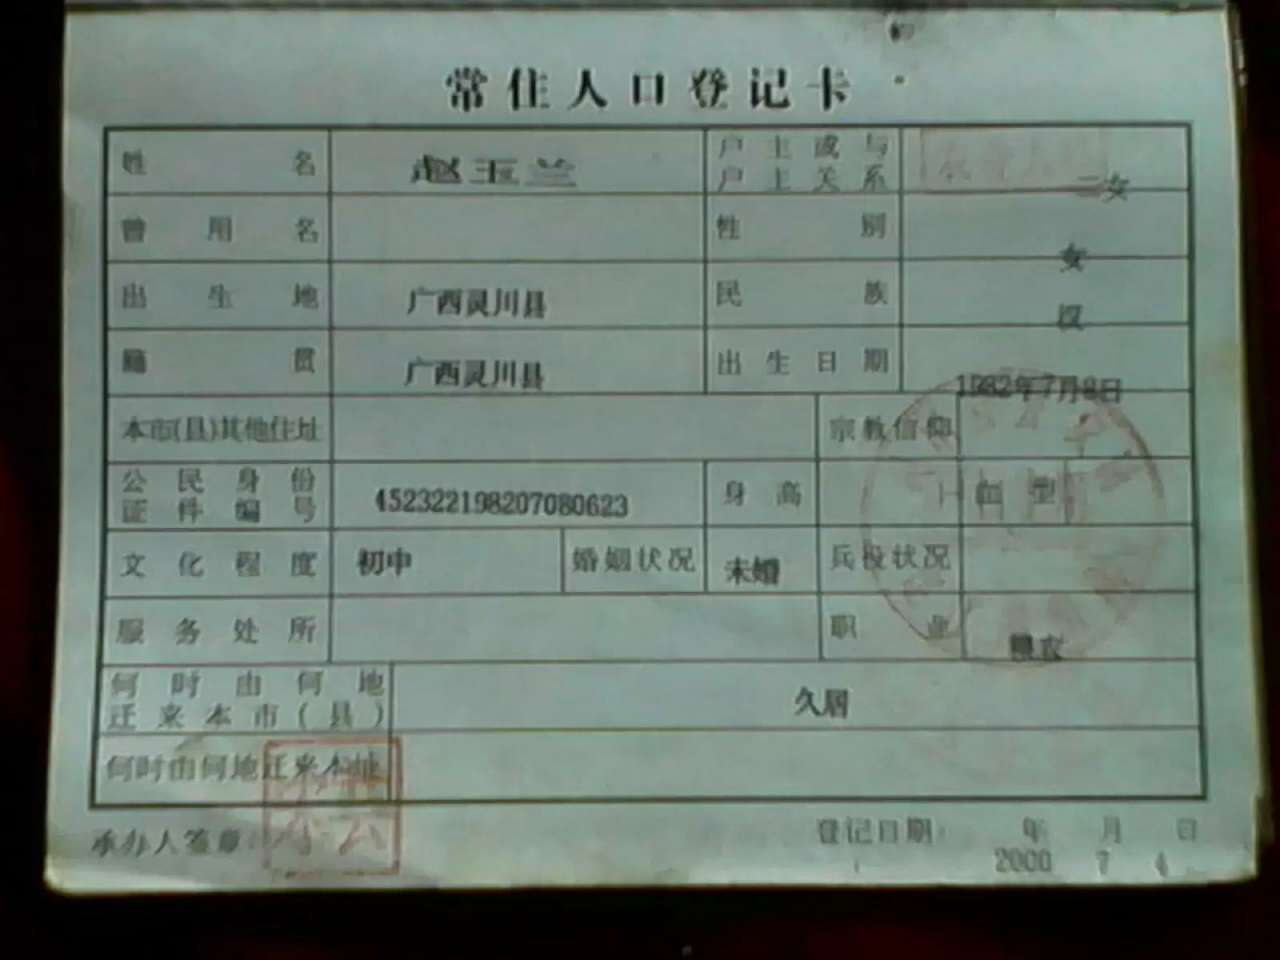 常住人口登记卡
姓名 赵玉兰 户主或与户主关系 二女
曾用名 性别 女
出生地 广西灵川县 民族 汉
籍贯 广西灵川县 出生日期 1982年7月8日
本市(县)其他住址 宗教信仰
公民身份证件编号 452322198207080623 身高 血型
文化程度 初中 婚姻状况 未婚 兵役状况
服务处所 职业 粮农
何时由何地迁来本市(县) 久居
何时由何地迁来本址
承办人签章: 登记日期: 年 月 日
2000 7 4